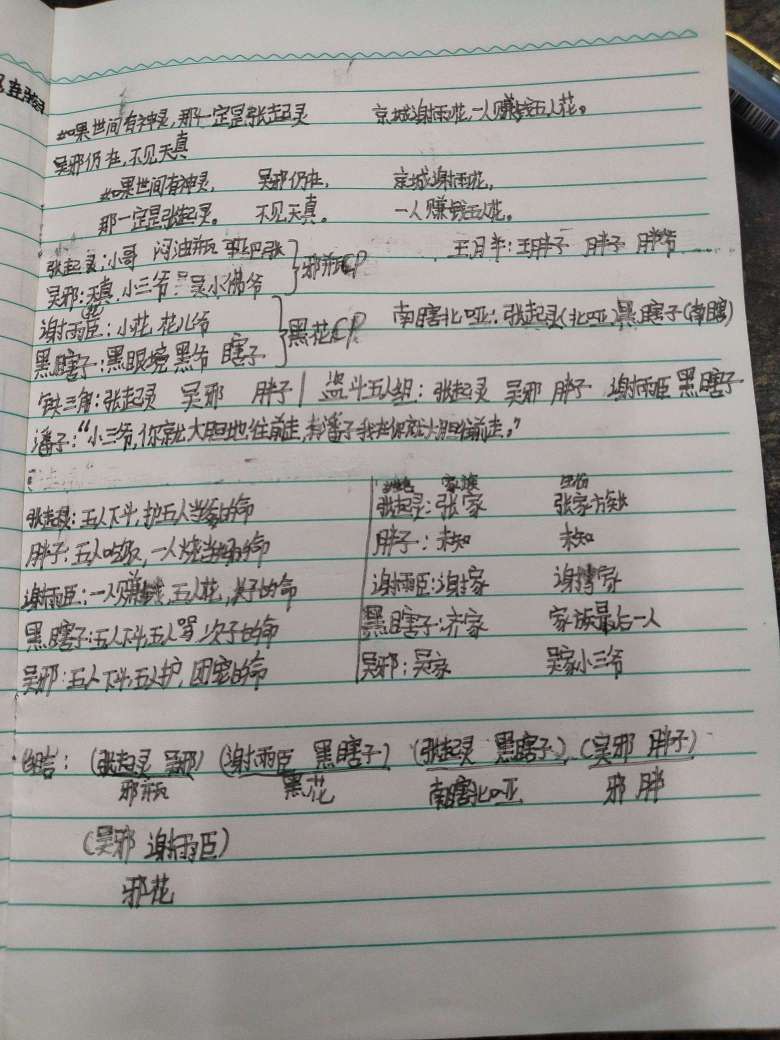 如果世间有神灵,那一定是张起灵 京城谢雨花,一人赚钱五人花。
吴邪仍在,不见天真
如果世间有神灵, 吴邪仍在, 京城谢雨花,
那一定是张起灵。 不见天真。 一人赚钱五人花。
张起灵:小哥 闷油瓶 哑巴张 }邪瓶CP 王月半:王胖子 胖子 胖爷
吴邪:天真 小三爷 吴小佛爷
谢雨臣:小花 花儿爷 }黑花CP 南瞎北哑:张起灵(北哑)黑瞎子(南瞎)
黑瞎子:黑眼镜 黑爷 瞎子
铁三角:张起灵 吴邪 胖子 | 盗斗五人组:张起灵 吴邪 胖子 谢雨臣 黑瞎子
潘子:“小三爷,你就大胆地往前走,有潘子我在你就大胆往前走。”
家族 身份
张起灵:五人下斗,护五人的命 张起灵:张家 张家族长
胖子:五人吃饭,一人烧的命 胖子:未知 未知
谢雨臣:一人赚钱,五人花,的命 谢雨臣:谢家 谢家
黑瞎子:五人下斗,五人骂,次子的命 黑瞎子:齐家 家族最后一人
吴邪:五人下斗,五人护,团宠的命 吴邪:吴家 吴家小三爷
组合:(张起灵 吴邪) (谢雨臣 黑瞎子) (张起灵 黑瞎子) (吴邪 胖子)
邪瓶 黑花 南瞎北哑 邪胖
(吴邪 谢雨臣)
邪花